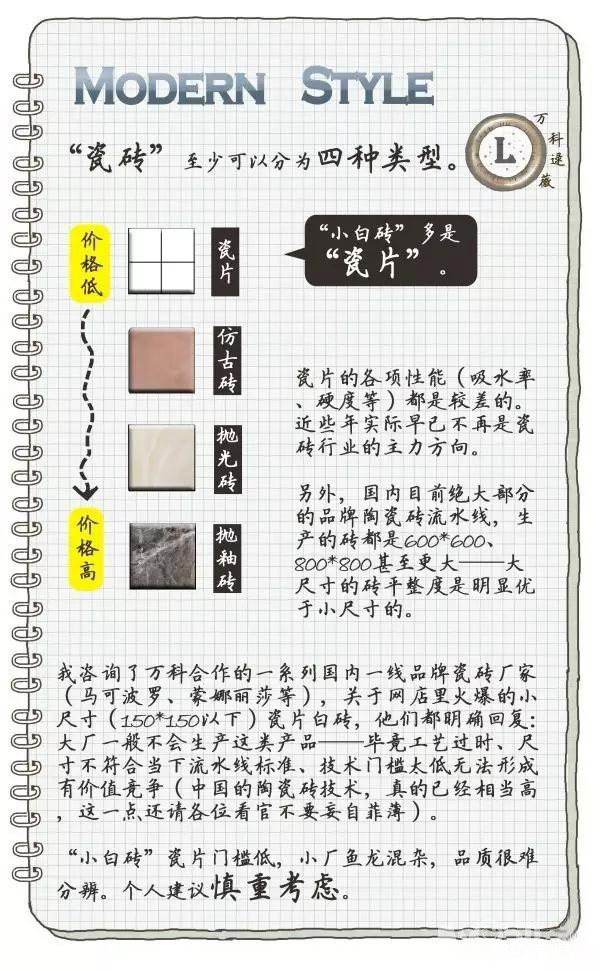 MODERN STYLE
“瓷砖” 至少可以分为四种类型。
L
万科逯薇
价格低
瓷片
“小白砖” 多是
“瓷片” 。
仿古砖
抛光砖
价格高
抛釉砖
瓷片的各项性能（吸水率
、硬度等）都是较差的。
近些年实际早已不再是瓷
砖行业的主力方向。
另外，国内目前绝大部分
的品牌陶瓷砖流水线，生
产的砖都是600*600、
800*800甚至更大——大
尺寸的砖平整度是明显优
于小尺寸的。
我咨询了万科合作的一系列国内一线品牌瓷砖厂家
（马可波罗、蒙娜丽莎等），关于网店里火爆的小
尺寸（150*150以下）瓷片白砖，他们都明确回复：
大厂一般不会生产这类产品——毕竟工艺过时、尺
寸不符合当下流水线标准、技术门槛太低无法形成
有价值竞争（中国的陶瓷砖技术，真的已经相当高
，这一点还请各位看官不要妄自菲薄）。
“小白砖”瓷片门槛低，小厂鱼龙混杂，品质很难
分辨。个人建议慎重考虑。